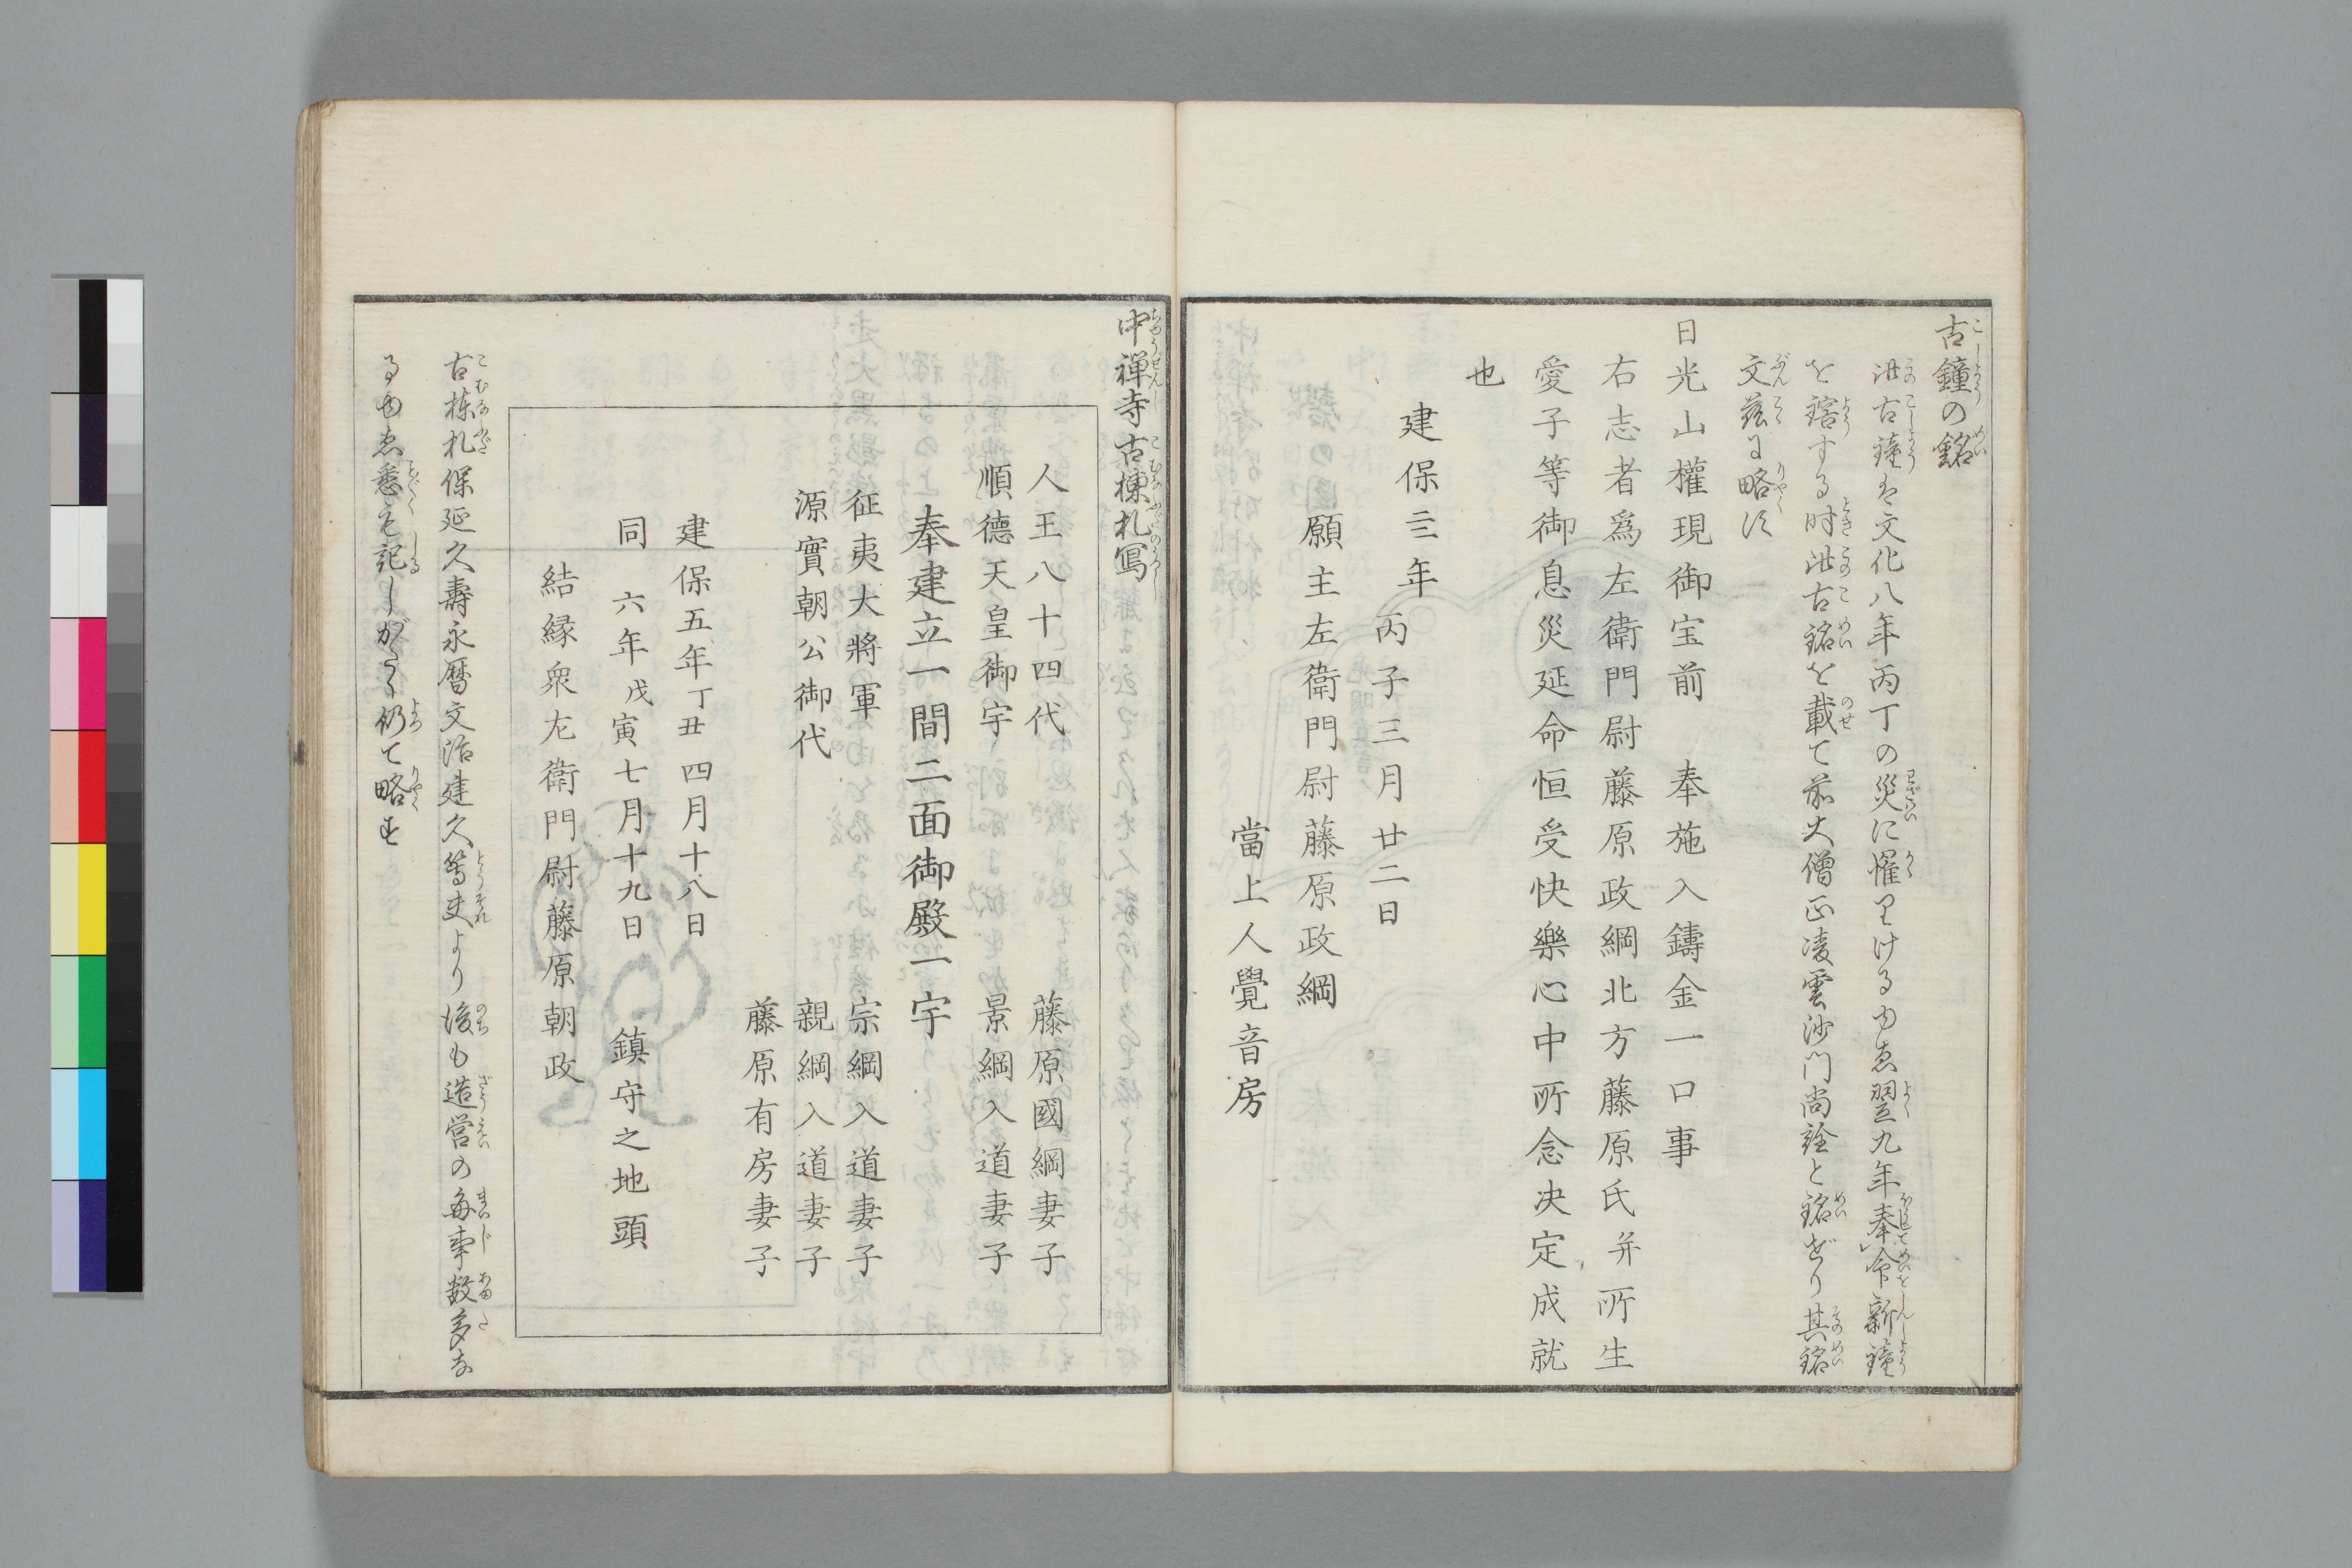 古鐘の銘
此古鐘は文化八年丙丁の災に罹りけるゆゑ翌九年奉命新鐘
を鎔する时此古銘を載て前大僧正凌雲沙門尚詮と銘せり其銘
文茲に略す
日光山權現御宝前　奉施入鑄金一口事
右志者爲左衛門尉藤原政綱北方藤原氏并所生
愛子等御息災延命恒受快樂心中所念决定成就
也
建保三年
丙子三月廿二日
願主左衛門尉藤原政綱
當上人覺音房
中禅寺古棟札寫
人王八十四代　藤原國綱妻子
順德天皇御宇　景綱入道妻子
奉建立一間二面御殿一宇
征夷大將軍　宗綱入道妻子
源實朝公御代　親綱入道妻子
藤原有房妻子
建保五年丁丑四月十八日
同　六年戊寅七月十九日　鎮守之地頭
結縁衆左衛門尉藤原朝政
古棟札保延久壽永暦文治建久等夫より後も造営の毎事数多な
るゆゑ悉く記しがたく仍て略す